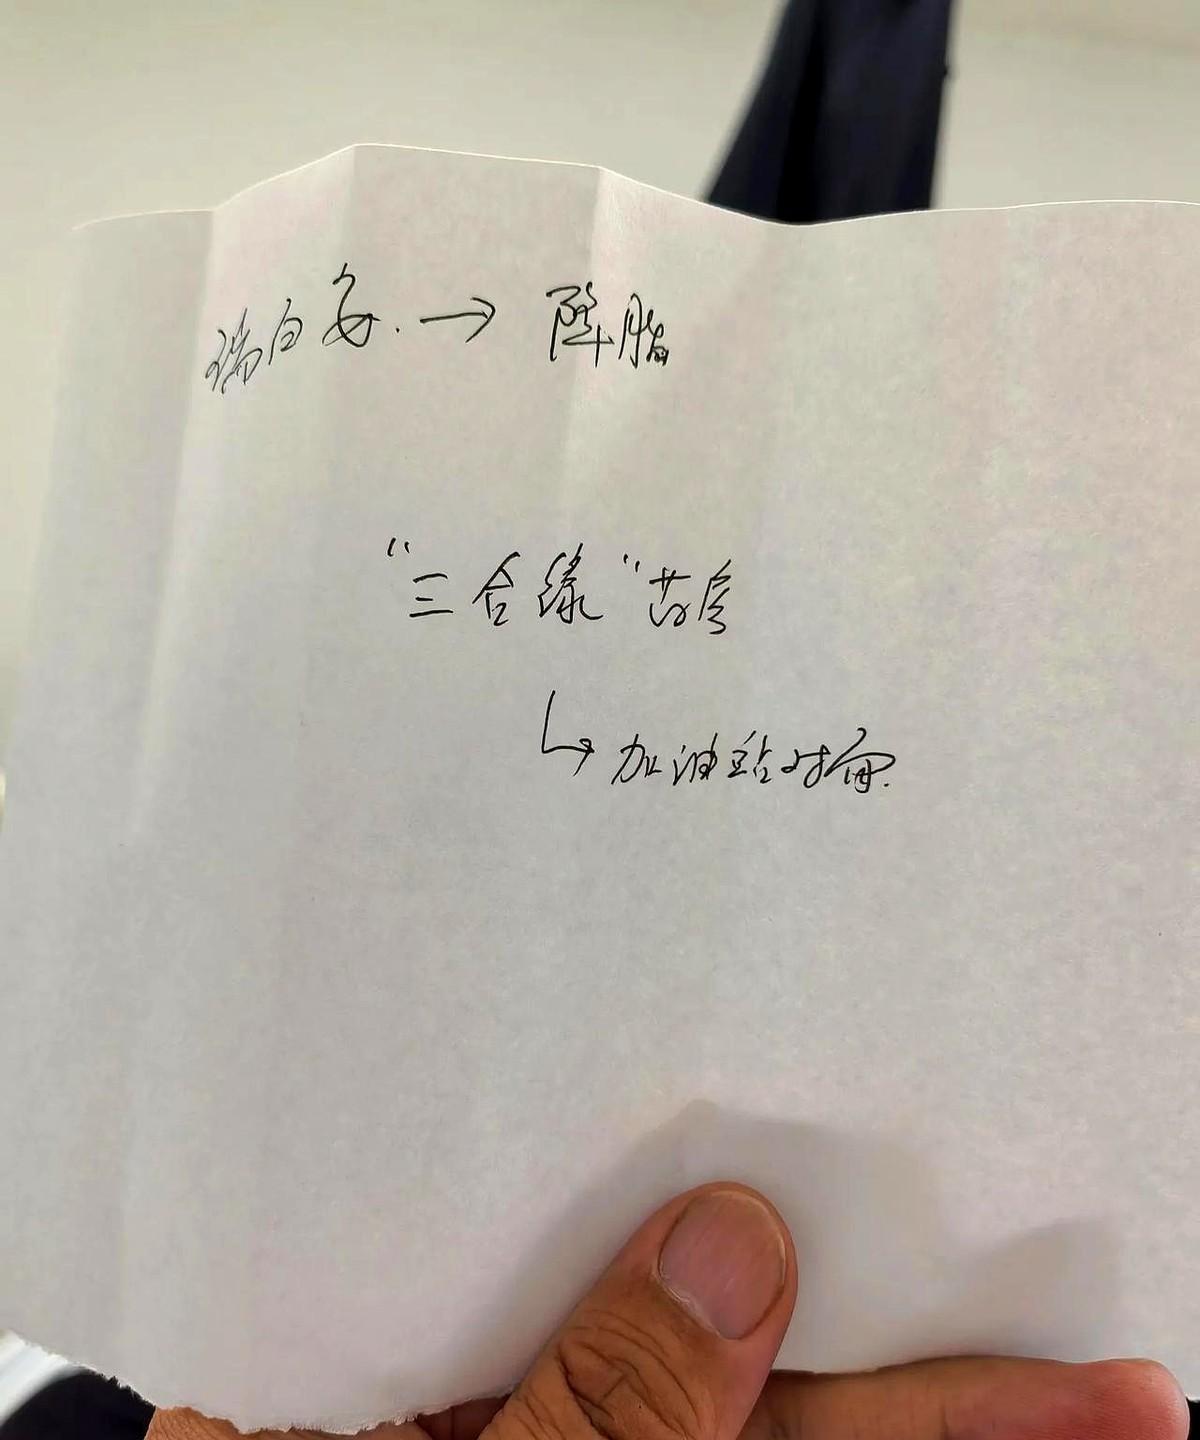 瑞白安.→降脂
“三合缘”药房
↳加油站对面.